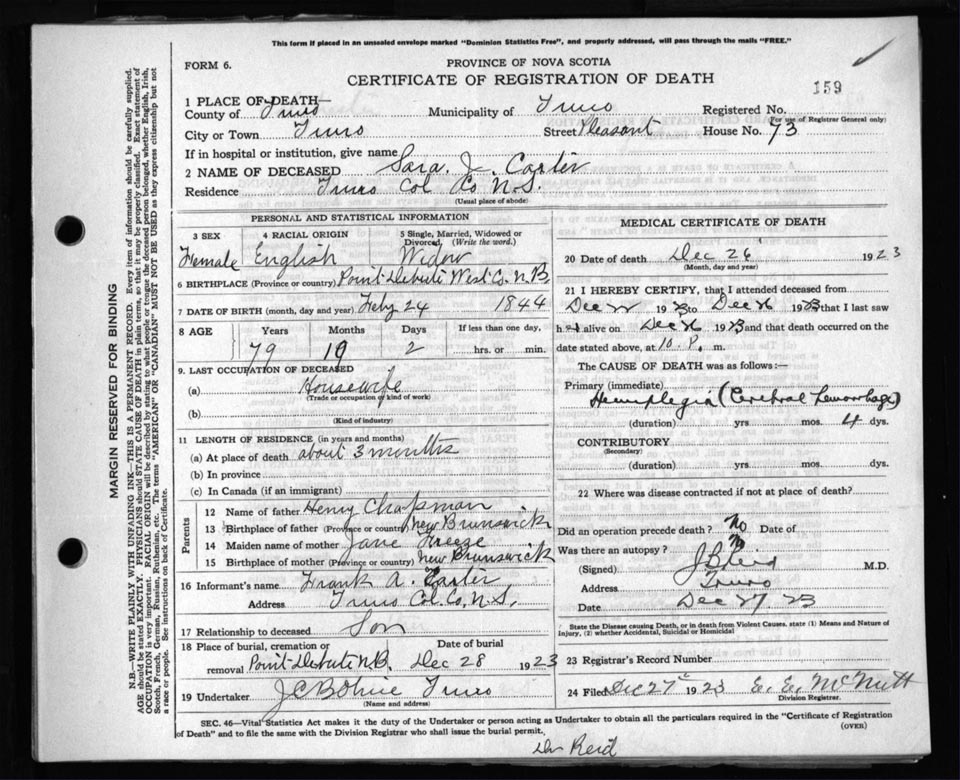 This form if placed in an unsealed envelope marked "Dominion Statistics Free", and properly addressed, will pass through the mails "FREE."
FORM 6.
PROVINCE OF NOVA SCOTIA
CERTIFICATE OF REGISTRATION OF DEATH
159
1 PLACE OF DEATH—
County of Truro Municipality of Truro Registered No.
(For use of Registrar General only)
City or Town Truro Street Pleasant House No. 73
If in hospital or institution, give name
2 NAME OF DECEASED Sara. J. Carter
Residence Truro Col Co N.S.
(Usual place of abode)
PERSONAL AND STATISTICAL INFORMATION
3 SEX 4 RACIAL ORIGIN 5 Single, Married, Widowed or Divorced, (Write the word.)
Female English Widow
6 BIRTHPLACE (Province or country) Point Debute West Co. N.B
7 DATE OF BIRTH (month, day and year) Feby 24 1844
8 AGE Years Months Days If less than one day,
79 10 2 hrs. or min.
9. LAST OCCUPATION OF DECEASED
(a) Housewife
(Trade or occupation or kind of work)
(b)
(Kind of industry)
11 LENGTH OF RESIDENCE (in years and months)
(a) At place of death about 3 months
(b) In province
(c) In Canada (if an immigrant)
Parents
12 Name of father Henry Chapman
13 Birthplace of father (Province or country) New Brunswick
14 Maiden name of mother Jane Freeze
15 Birthplace of mother (Province or country) New Brunswick
16 Informant's name Frank A. Carter
Address Truro Col. Co, N.S,
17 Relationship to deceased Son
18 Place of burial, cremation or removal Date of burial
Point Debute N.B. Dec 28 1923
19 Undertaker Truro
(Name and address)
MEDICAL CERTIFICATE OF DEATH
20 Date of Death Dec 26 1923
(Month, day and year)
21 I HEREBY CERTIFY, that I attended deceased from
Dec 22 1923 to Dec 26 1923 that I last saw
h er alive on Dec 26 1923 and that death occurred on
date stated above, at 10 P. m.
The CAUSE OF DEATH was as follows:—
Primary (immediate)
Hemiplegia (Cerebral Hemorrhage)
(duration) yrs mos. 4 dys.
CONTRIBUTORY
(Secondary)
(duration) yrs. mos. dys.
22 Where was disease contracted if not at place of death?
Did an operation precede death? No Date of
Was there an autopsy?
(Signed) Reid M.D.
Address Truro
Date Dec 27, 23
State the Disease causing Death, or in death from Violent Causes, state (1) Means and Nature of
Injury, (2) whether Accidental, Suicidal or Homicidal
23 Registrar's Record Number
24 Filed Dec 27 1923 E. E. McNutt
Division Registrar.
SEC. 46—Vital Statistics Act makes it the duty of the Undertaker or person acting as Undertaker to obtain all the particulars required in the "Certificate of Registration
of Death" and to file the same with the Division Registrar who shall issue the burial permit.
(OVER)
Dr Reid
MARGIN RESERVED FOR BINDING
N.B.—WRITE PLAINLY WITH UNFADING INK—THIS IS A PERMANENT RECORD. Every item of information should be carefully supplied.
AGE should be stated EXACTLY. PHYSICIANS should STATE CAUSE OF DEATH in plain terms, so that it may be properly classified. Exact statement of
OCCUPATION is very important. RACIAL ORIGIN will be described by stating to what people or tongue the deceased person belonged, whether English, Irish,
Scotch, French, German, Russian, Ruthenian, etc. The terms "AMERICAN" OR "CANADIAN" MUST NOT BE USED as they express citizenship but not
a race or people. See instructions on back of Certificate.